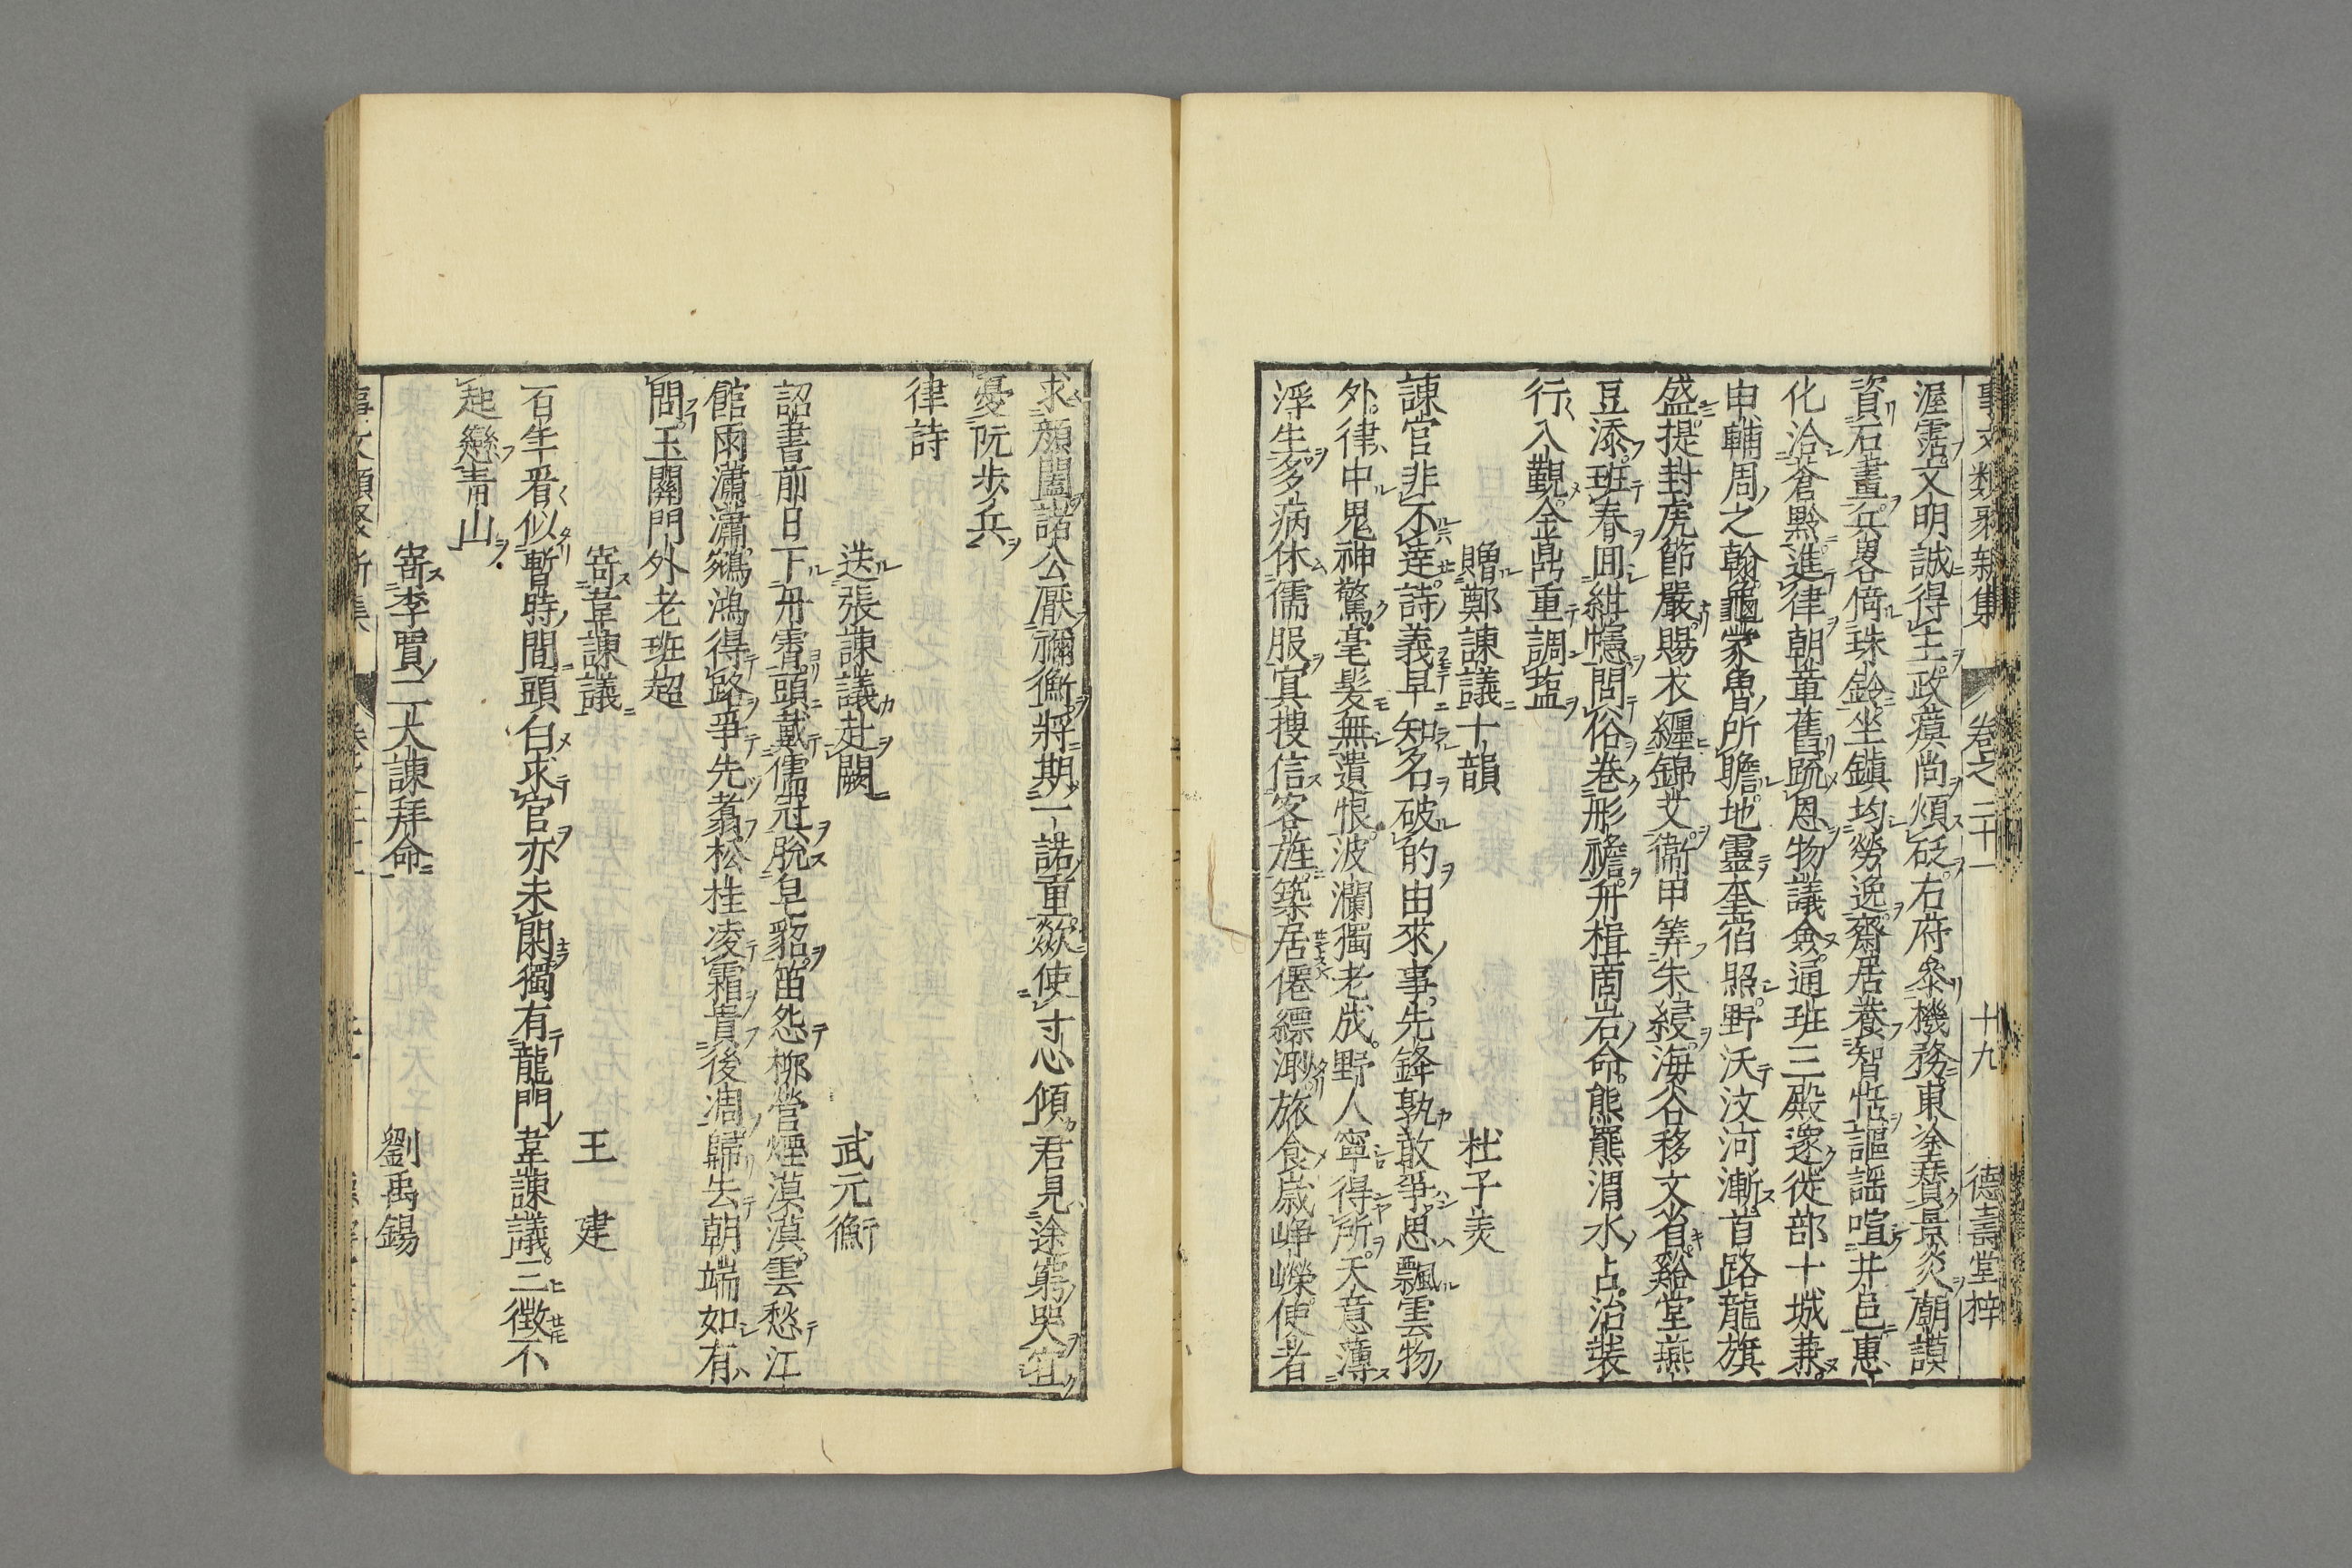 事文類聚新集 卷之二十一 十九 德壽堂梓
渥霑文明誠得主政瘼尚煩砭右府叅機務東塗賛景炎廟謨
資石畫兵畧倚珠鈐坐鎮均勞逸齋居養智恬謳謡喧井邑惠
化洽蒼黔進律朝章舊䟽恩物議僉通班三殿邃徙部十城兼
申輔周之翰龜䝉魯所瞻地靈奎宿照野沃汶河漸首路龍旗
盛提封虎節嚴賜衣纏錦艾衞甲筭朱綅海谷移文省谿堂燕
豆添班春囬紺幰問俗巻彤襜舟楫商岩命熊羆渭水占治裝
行入覲金鼎重調塩
贈鄭諫議十韻 杜子美
諫官非不逹詩義早知名破的由來事先鋒孰敢爭思飄雲物
外律中鬼神驚毫髪無遺恨波瀾獨老成野人寧得所天意薄
浮生多病休儒服㝠搜信客旌築居僊縹渺旅食歲崢嶸使者
求顔闔諸公厭禰衡將期一諾重歘使寸心傾君見途窮哭宐
憂阮步兵
律詩
送張諫議赴闕 武元衡
詔書前日下丹霄頭戴儒冠脫皂貂笛怨栁營煙漠漠雲愁江
館雨瀟瀟鵷鴻得路爭先翥松桂凌霜貴後凋歸去朝端如有
問玉關門外老班超
寄韋諫議 王建
百年看似暫時間頭白求官亦未閑獨有龍門韋諫議三徵不
起戀青山
寄李賈二大諫拜命 劉禹錫